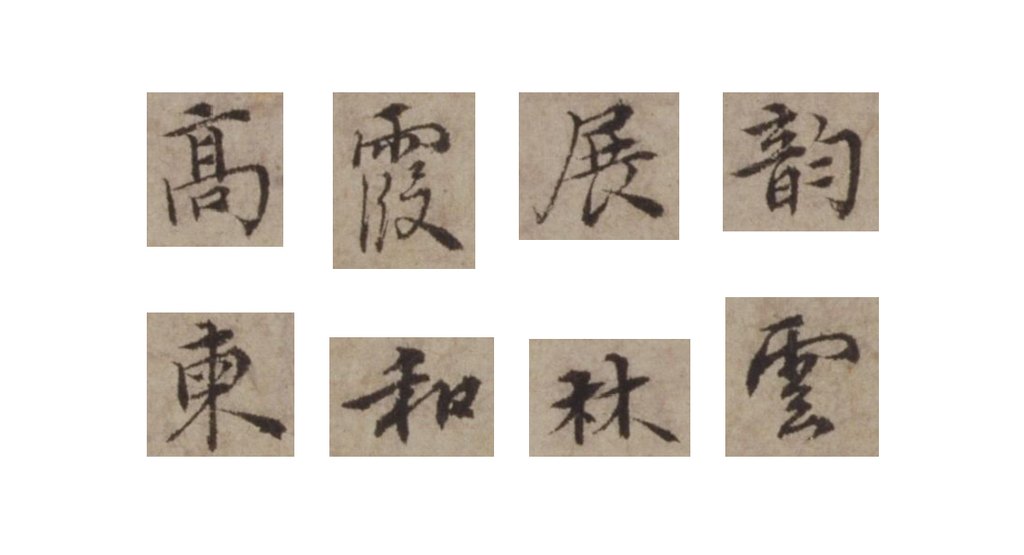 高霞展韵
東和林雲